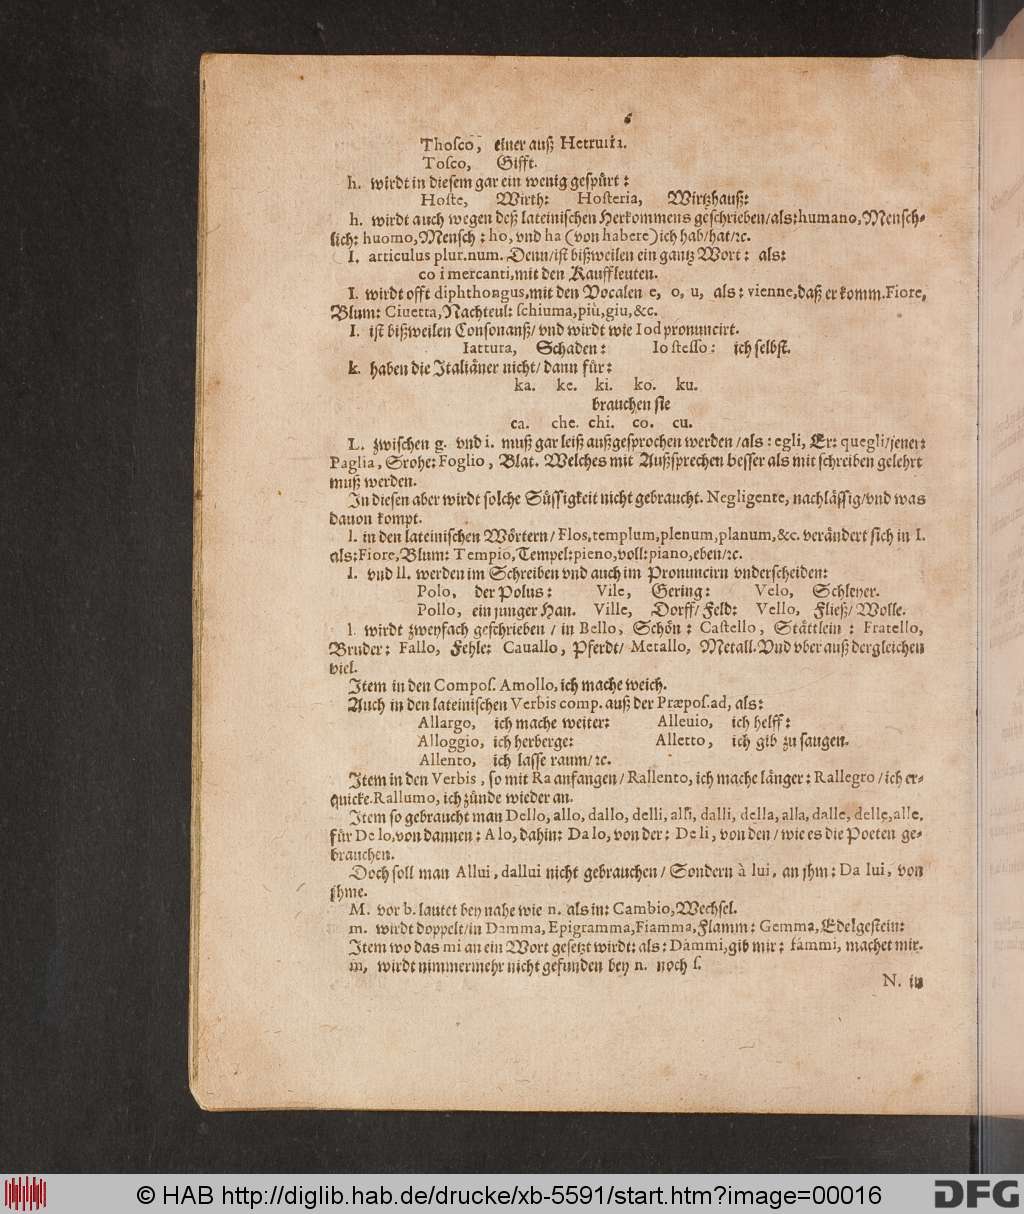 6
Thoſco, einer auß Hetruria.
Toſco, Gifft.
h. wirdt in dieſem gar ein wenig geſpuͤrt:
Hoſte, Wirth: Hoſteria, Wirtzhauß:
h. wirdt auch wegen deß lateiniſchen Herkommens geſchrieben/als: humano, Menſch-
lich: huomo, Menſch: ho, vnd ha (von habere) ich hab/hat/ꝛc.
I. articulus plur.num. Denn/iſt bißweilen ein gantz Wort: als:
co i mercanti, mit den Kauffleuten.
I. wirdt offt diphthongus, mit den Vocalen e, o, u, als: vienne, daß er komm. Fiore,
Blum: Ciuetta, Nachteul: ſchiuma, più, giu, &c.
I. iſt bißweilen Conſonanß/ vnd wirdt wie Iod pronuncirt.
Iattura, Schaden: Io ſteſſo: ich ſelbſt.
k. haben die Italiaͤner nicht/ dann fuͤr:
ka. ke. ki. ko. ku.
brauchen ſie
ca. che. chi. co. cu.
L. zwiſchen g. vnd i. muß gar leiß außgeſprochen werden/als: egli, Er: quegli/jener:
Paglia, Srohe: Foglio, Blat. Welches mit Außſprechen beſſer als mit ſchreiben gelehrt
muß werden.
In dieſen aber wirdt ſolche Suͤſſigkeit nicht gebraucht. Negligente, nachlaͤſſig/vnd was
dauon kompt.
l. in den lateiniſchen Woͤrtern/ Flos, templum, plenum, planum, &c. veraͤndert ſich in I.
als: Fiore, Blum: Tempio, Tempel: pieno, voll: piano, eben/ꝛc.
l. vnd ll. werden im Schreiben vnd auch im Pronuncirn vnderſcheiden:
Polo, der Polus: Vile, Gering: Velo, Schleyer.
Pollo, ein junger Han. Ville, Dorff/ Feld: Vello, Fließ/ Wolle.
l. wirdt zweyfach geſchrieben/ in Bello, Schoͤn: Caſtello, Staͤttlein: Fratello,
Bruder: Fallo, Fehle: Cauallo, Pferdt/ Metallo, Metall. Vnd vber auß dergleichen
viel.
Item in den Compoſ. Amollo, ich mache weich.
Auch in den lateiniſchen Verbis comp. auß der Præpoſ. ad, als:
Allargo, ich mache weiter: Alleuio, ich helff:
Alloggio, ich herberge: Alletto, ich gib zu ſaugen.
Allento, ich laſſe raum/ꝛc.
Item in den Verbis, ſo mit Ra anfangen/ Rallento, ich mache laͤnger: Rallegro/ ich er-
quicke. Rallumo, ich zuͤnde wieder an.
Item ſo gebraucht man Dello, allo, dallo, delli, alli, dalli, della, alla, dalle, delle, alle,
fuͤr De lo, von dannen: A lo, dahin: Da lo, von der: De li, von den/ wie es die Poeten ge-
brauchen.
Doch ſoll man Allui, dallui nicht gebrauchen/ Sondern à lui, an jhm: Da lui, von
jhme.
M. vor b. lautet bey nahe wie n. als in: Cambio, Wechſel.
m. wirdt doppelt/in Damma, Epigramma, Fiamma, Flamm: Gemma, Edelgeſtein:
Item wo das mi an ein Wort geſetzt wirdt: als: Dammi, gib mir: fammi, machet mir.
m, wirdt nimmermehr nicht gefunden bey n. noch ſ.
N. in
© HAB http://diglib.hab.de/drucke/xb-5591/start.htm?image=00016
DFG